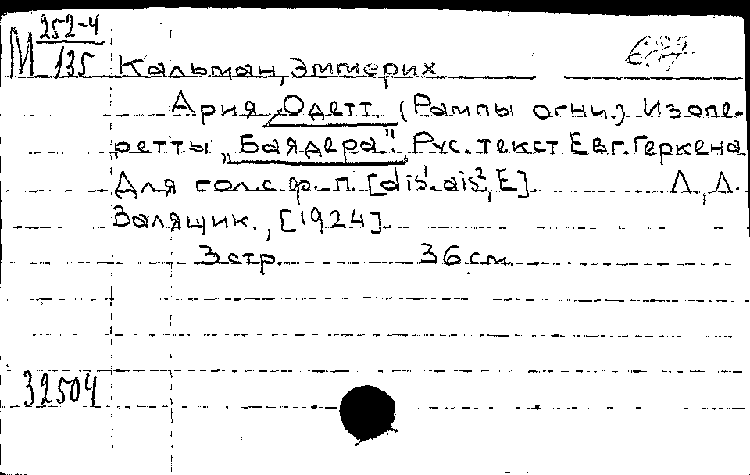 М 252-4
135
Кальман, Эммерих
Ария Одетт (Рампы огни). Из опе-
ретты „Баядера". Рус. текст Евг. Геркена
Для гол. с ф.-п. [dis¹-ais², E]. Л., Д.
Залящик., [1924].
3 стр. 36 см.
32504